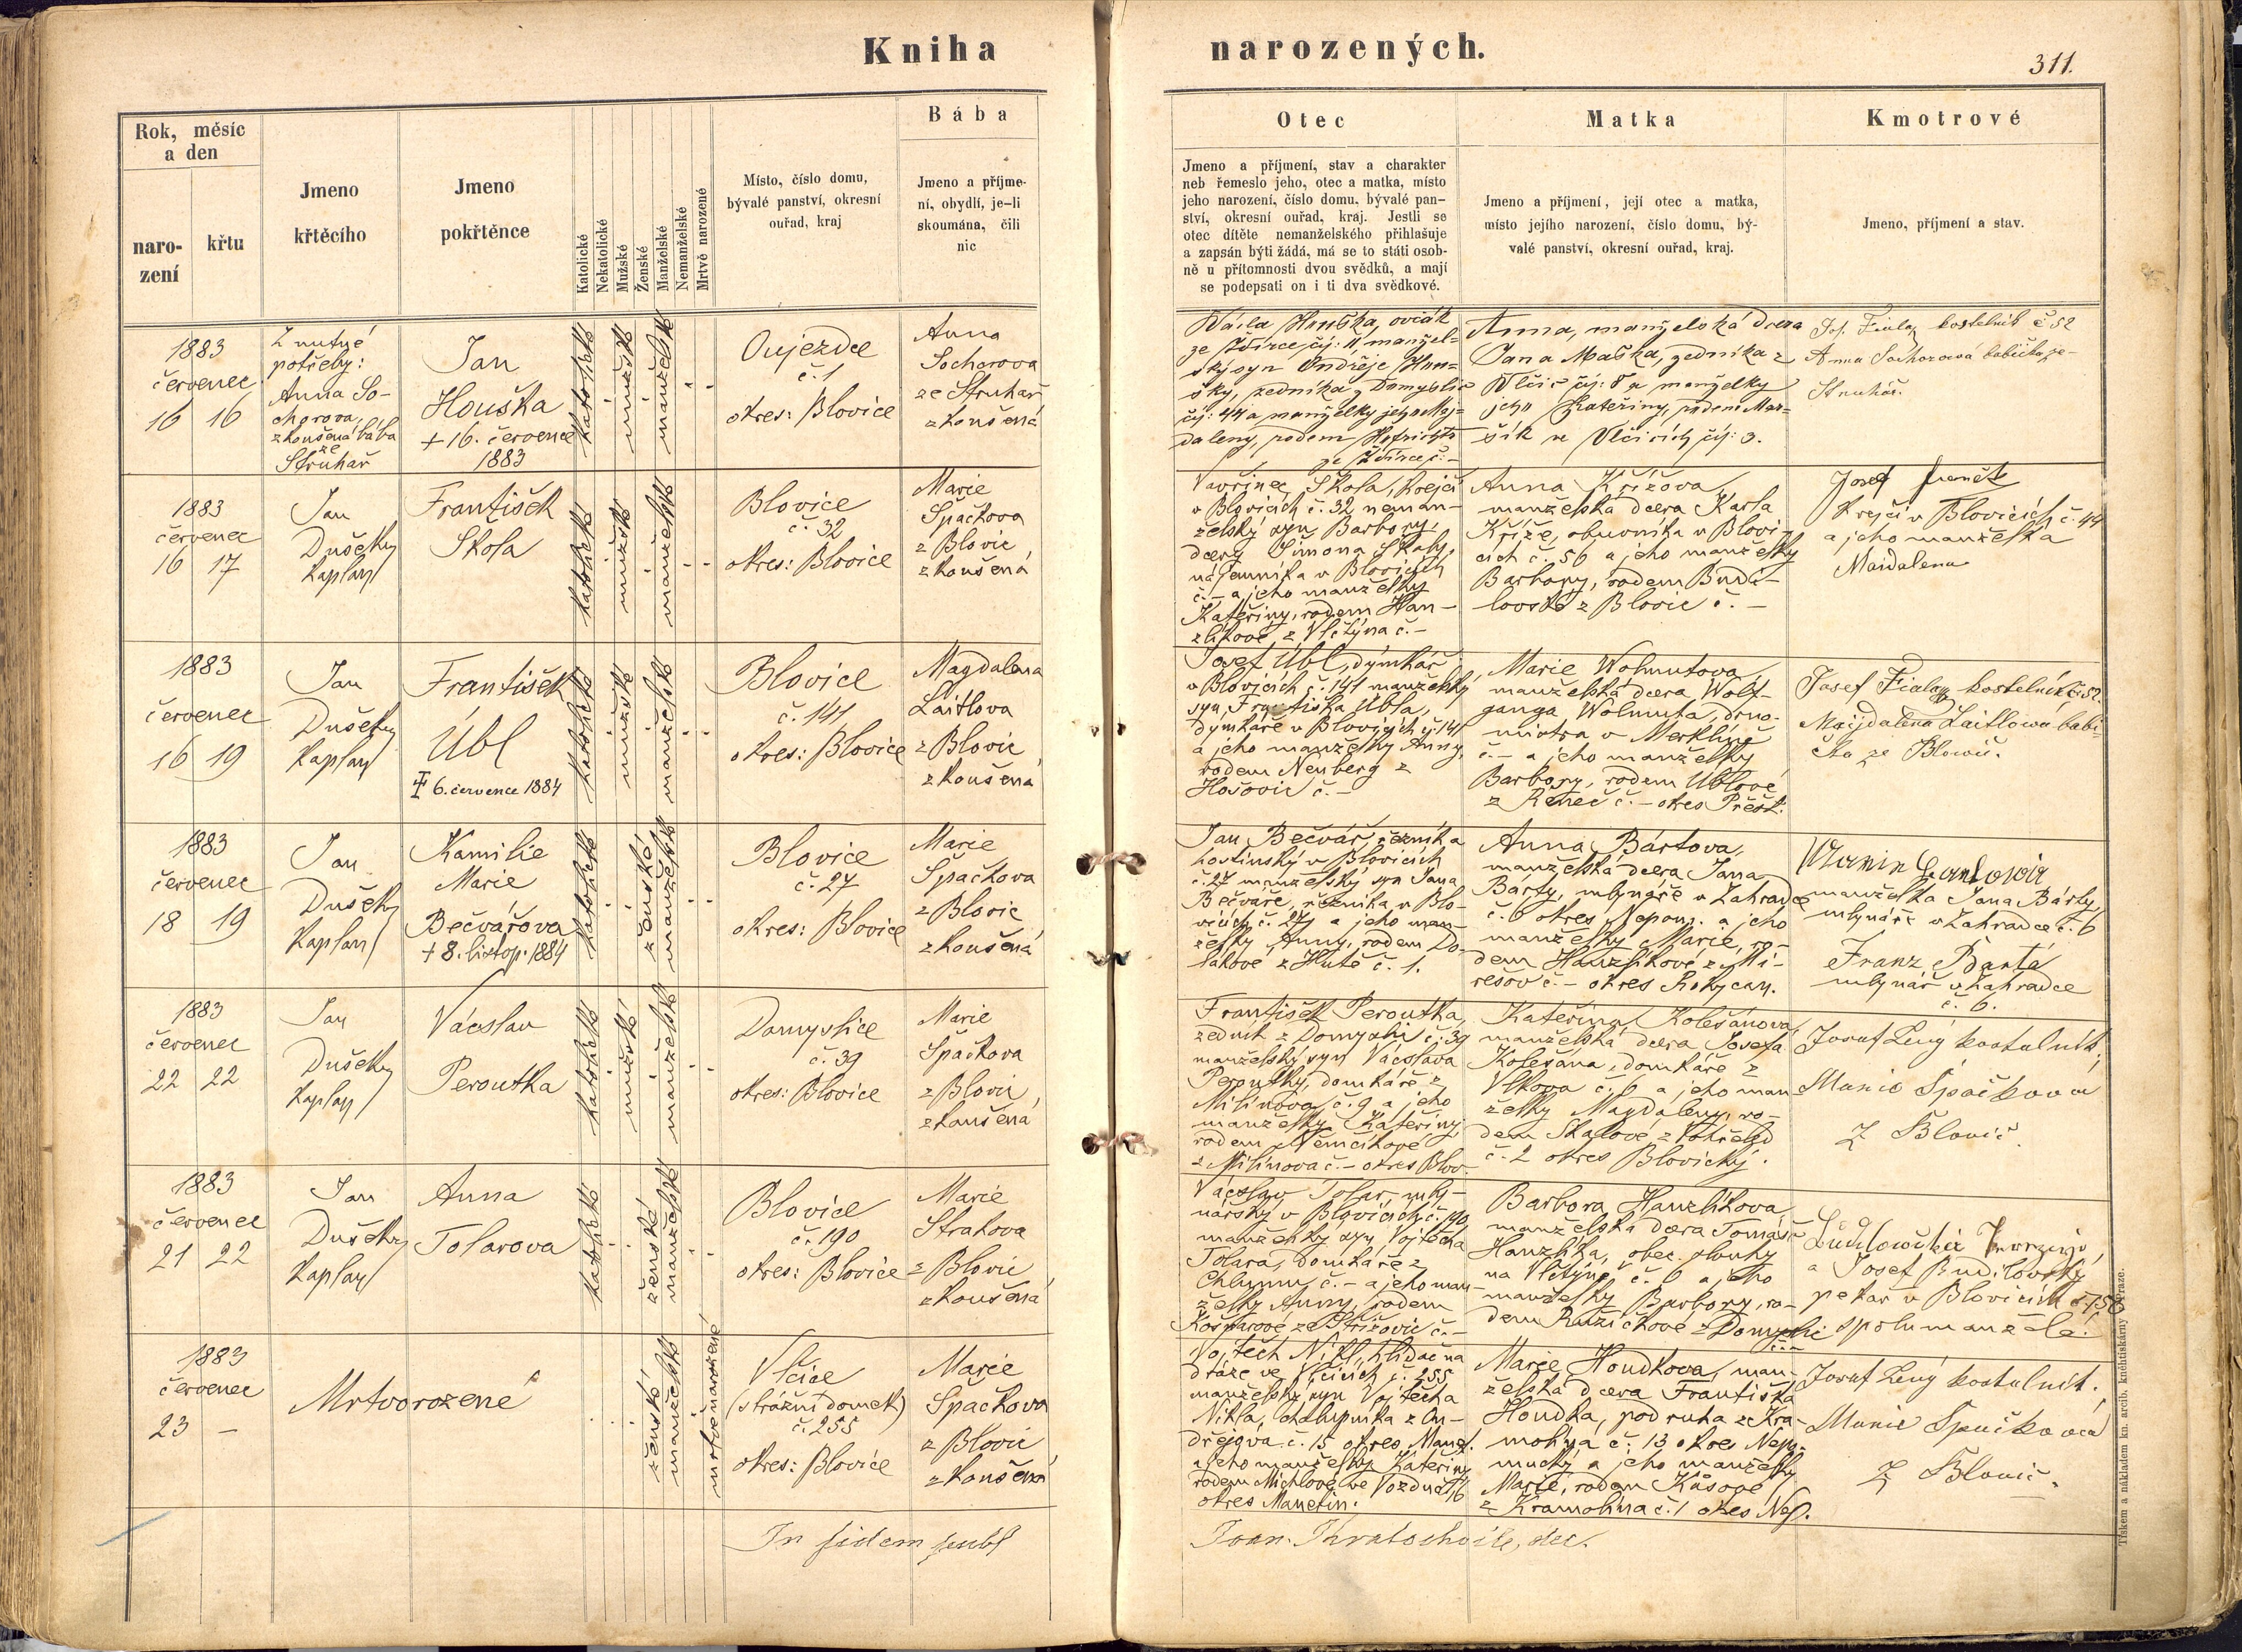 Kniha narozených.
311.
Rok, měsíc
a den
naro-
zení
křtu
Jmeno
křtěcího
Jmeno
pokřtěnce
Katolické
Nekatolické
Mužské
Ženské
Manželské
Nemanželské
Mrtvě narozené
Místo, číslo domu,
bývalé panství, okresní
ouřad, kraj
Bába
Jmeno a příjme-
ní, obydlí, je-li
skoumána, čili
nic
Otec
Jmeno a příjmení, stav a charakter
neb řemeslo jeho, otec a matka, místo
jeho narození, číslo domu, bývalé pan-
ství, okresní ouřad, kraj. Jestli se
otec dítěte nemanželského přihlašuje
a zapsán býti žádá, má se to státi osob-
ně u přítomnosti dvou svědků, a mají
se podepsati on i ti dva svědkové.
Matka
Jmeno a příjmení, její otec a matka,
místo jejího narození, číslo domu, bý-
valé panství, okresní ouřad, kraj.
Kmotrové
Jmeno, příjmení a stav.
1883
červenec
16 16
Z nutné
potřeby:
Anna So-
chorova,
zkoušená bába
ze
Struhař
Jan
Houška
+ 16. července
1883
katolické
mužské
manželské
Oujezdec
č. 1
okres: Blovice
Anna
Sochorova
ze Struhař
zkoušená
Houška, ovčák
ze Ždírce čp: 11 manžel-
ský syn Ondřeje Hou-
šky, zedníka z Domyslic
čp: 44 a manželky jeho Maj-
daleny, rodem
ze Ždírce č. –
Anna, manželská dcera
Jana Maška, zedníka z
Vlčic čp: 8 a manželky
jeho Kateřiny, rodem Mar-
šík ve Vlčicích čp: 3.
Jos. Fiala kostelník č 52
Anna Sochorová babička ze
Struhař.
1883
červenec
16 17
Jan
Dušek
kaplan
František
Škola
katolické
mužské
manželské
Blovice
č. 32
okres: Blovice
Marie
Špačkova
z Blovic
zkoušená
Vavřinec Škola, krejčí
v Blovicích č. 32 neman-
želský syn Barbory,
dcery Šimona Školy,
nájemníka v Blovicích
č. – a jeho manželky
Kateřiny, rodem Han-
zlíkové z Vlčtýna č. –
Anna Křížova
manželská dcera Karla
Kříže, obuvníka v Blovi-
cích č. 56 a jeho manželky
Barbory, rodem Budi-
lovské z Blovic č. –
Josef
Krejčí v Blovicích č. 44
a jeho manželka
Maidalena
1883
červenec
16 19
Jan
Dušek
kaplan
František
Úbl
‡ 6. července 1884
katolické
mužské
manželské
Blovice
č. 141
okres: Blovice
Magdalena
Laitlova
z Blovic
zkoušená
Josef Úbl, dýmkář
v Blovicích č. 141 manželský
syn Františka Úbla,
dýmkáře v Blovicích č. 141
a jeho manželky Anny,
rodem Neuberg z
Hošovic č. –
Marie Wolmutova
manželská dcera Wolf-
ganga Wolmuta,
mistra v Merklíně
č. – a jeho manželky
Barbory, rodem Úblové
z Řeneč č. – okres Přešt.
Josef Fiala kostelník č. 52
Majdalena Laitlowa babi-
čka ze Blowic.
1883
červenec
18 19
Jan
Dušek
kaplan
Kamilie
Marie
Bečvářova
+ 8. listop. 1884
katolické
ženské
manželské
Blovice
č. 27
okres: Blovice
Marie
Špačkova
z Blovic
zkoušená
Jan Bečvář, řezník a
hostinský v Blovicích
č. 27 manželský syn Jana
Bečváře, řezníka v Blo-
vicích č. 27 a jeho man-
želky Anny, rodem Do-
lákové z Hutě č. 1.
Anna Bártova,
manželská dcera Jana
Bárty, mlynáře v Zahradce
č. 6 okres Nepom. a jeho
manželky Marie, ro-
dem Hanzlíkové z Mi-
rešov č. – okres Rokycan.
manželka Jana Bárty,
mlynáře v Zahradce č. 6
Franz Barta
mlynář v Zahradce
č. 6.
1883
červenec
22 22
Jan
Dušek
kaplan
Vácslav
Peroutka
katolické
mužské
manželské
Domyslice
č. 39
okres: Blovice
Marie
Špačkova
z Blovic
zkoušená
František Peroutka,
zedník z Domyslic č. 39
manželský syn Vácslava
Peroutky, domkáře z
Milínova č. 9 a jeho
manželky Kateřiny
rodem Němčíkové
z Milínova č. – okres Blov.
Kateřina Kolešánová,
manželská dcera Josefa
Kolešána, domkáře z
Vlkova č. 6 a jeho man
želky Magdaleny, ro-
dem Skalové z
č. 2 okres Blovický.
Josef Lený kostelník,
Marie Špačkova
z Blovic.
1883
červenec
21 22
Jan
Dušek
kaplan
Anna
Tolarova
katolické
ženské
manželské
Blovice
č. 190
okres: Blovice
Marie
Strakova
z Blovic
zkoušená
Vácslav Tolar, mly-
nářský v Blovicích č. 190,
manželský syn Vojtěcha
Tolara, domkáře z
Chlumu č. – a jeho man-
želky Anny, rodem
ze Střížovic č. –
Barbora Hanzlíkova
manželská dcera Tomáše
Hanzlíka, obec. slouhy
na Vlčtýně č. 6 a jeho
manželky Barbory, ro-
dem Růžičkové z Domyslic
č. –
a Josef Budilovský
pekař v Blovicích
spolumanželé.
1883
červenec
23 –
Mrtvorozené
ženské
manželské
mrtvěnarozené
Vlčice
(strážní domek)
č. 255
okres: Blovice
Marie
Špačkova
z Blovic
zkoušená
Vojtěch Nikl, hlídač na
dráze ve Vlčicích č. 255
manželský syn Vojtěcha
Nikla, chalupníka z On-
dřejova č. 15 okres Manet.
a jeho manželky Kateřiny
rodem Michlové ve
okres Manetín.
Marie Houdkova, man-
želská dcera Františka
Houdka, podruha ze Kra-
molína č. 13 okres Nepo-
mucký a jeho manželky
Marie, rodem Kasové
z Kramolína č. 1 okes Nep.
Josef Lený kostelník.
Marie Špačkova
z Blovic.
In fidem publ
Joan. děc.
Tiskem a nákladem kn. arcib. kněhtiskárny v Praze.